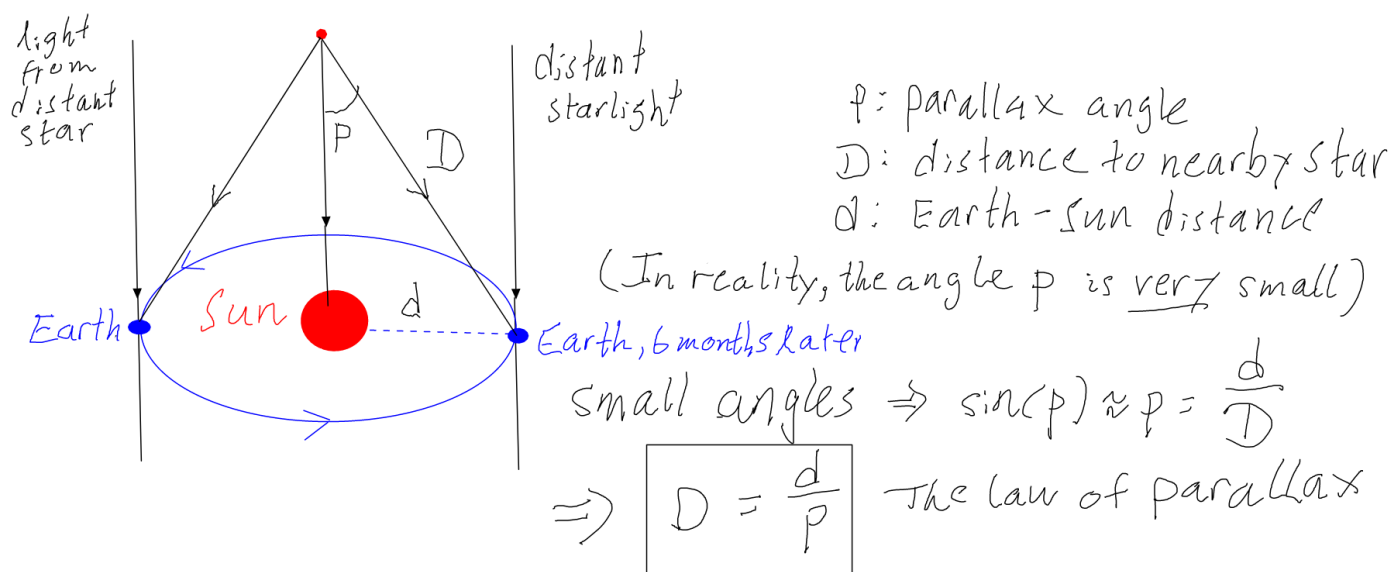 light
from
distant
star
distant
starlight
p
D
Sun
d
Earth
Earth, 6 months later
p: parallax angle
D: distance to nearby star
d: Earth-Sun distance
(In reality, the angle p is very small)
small angles ⇒ sin(p) ≈ p = d/D
⇒ D = d/p The law of parallax